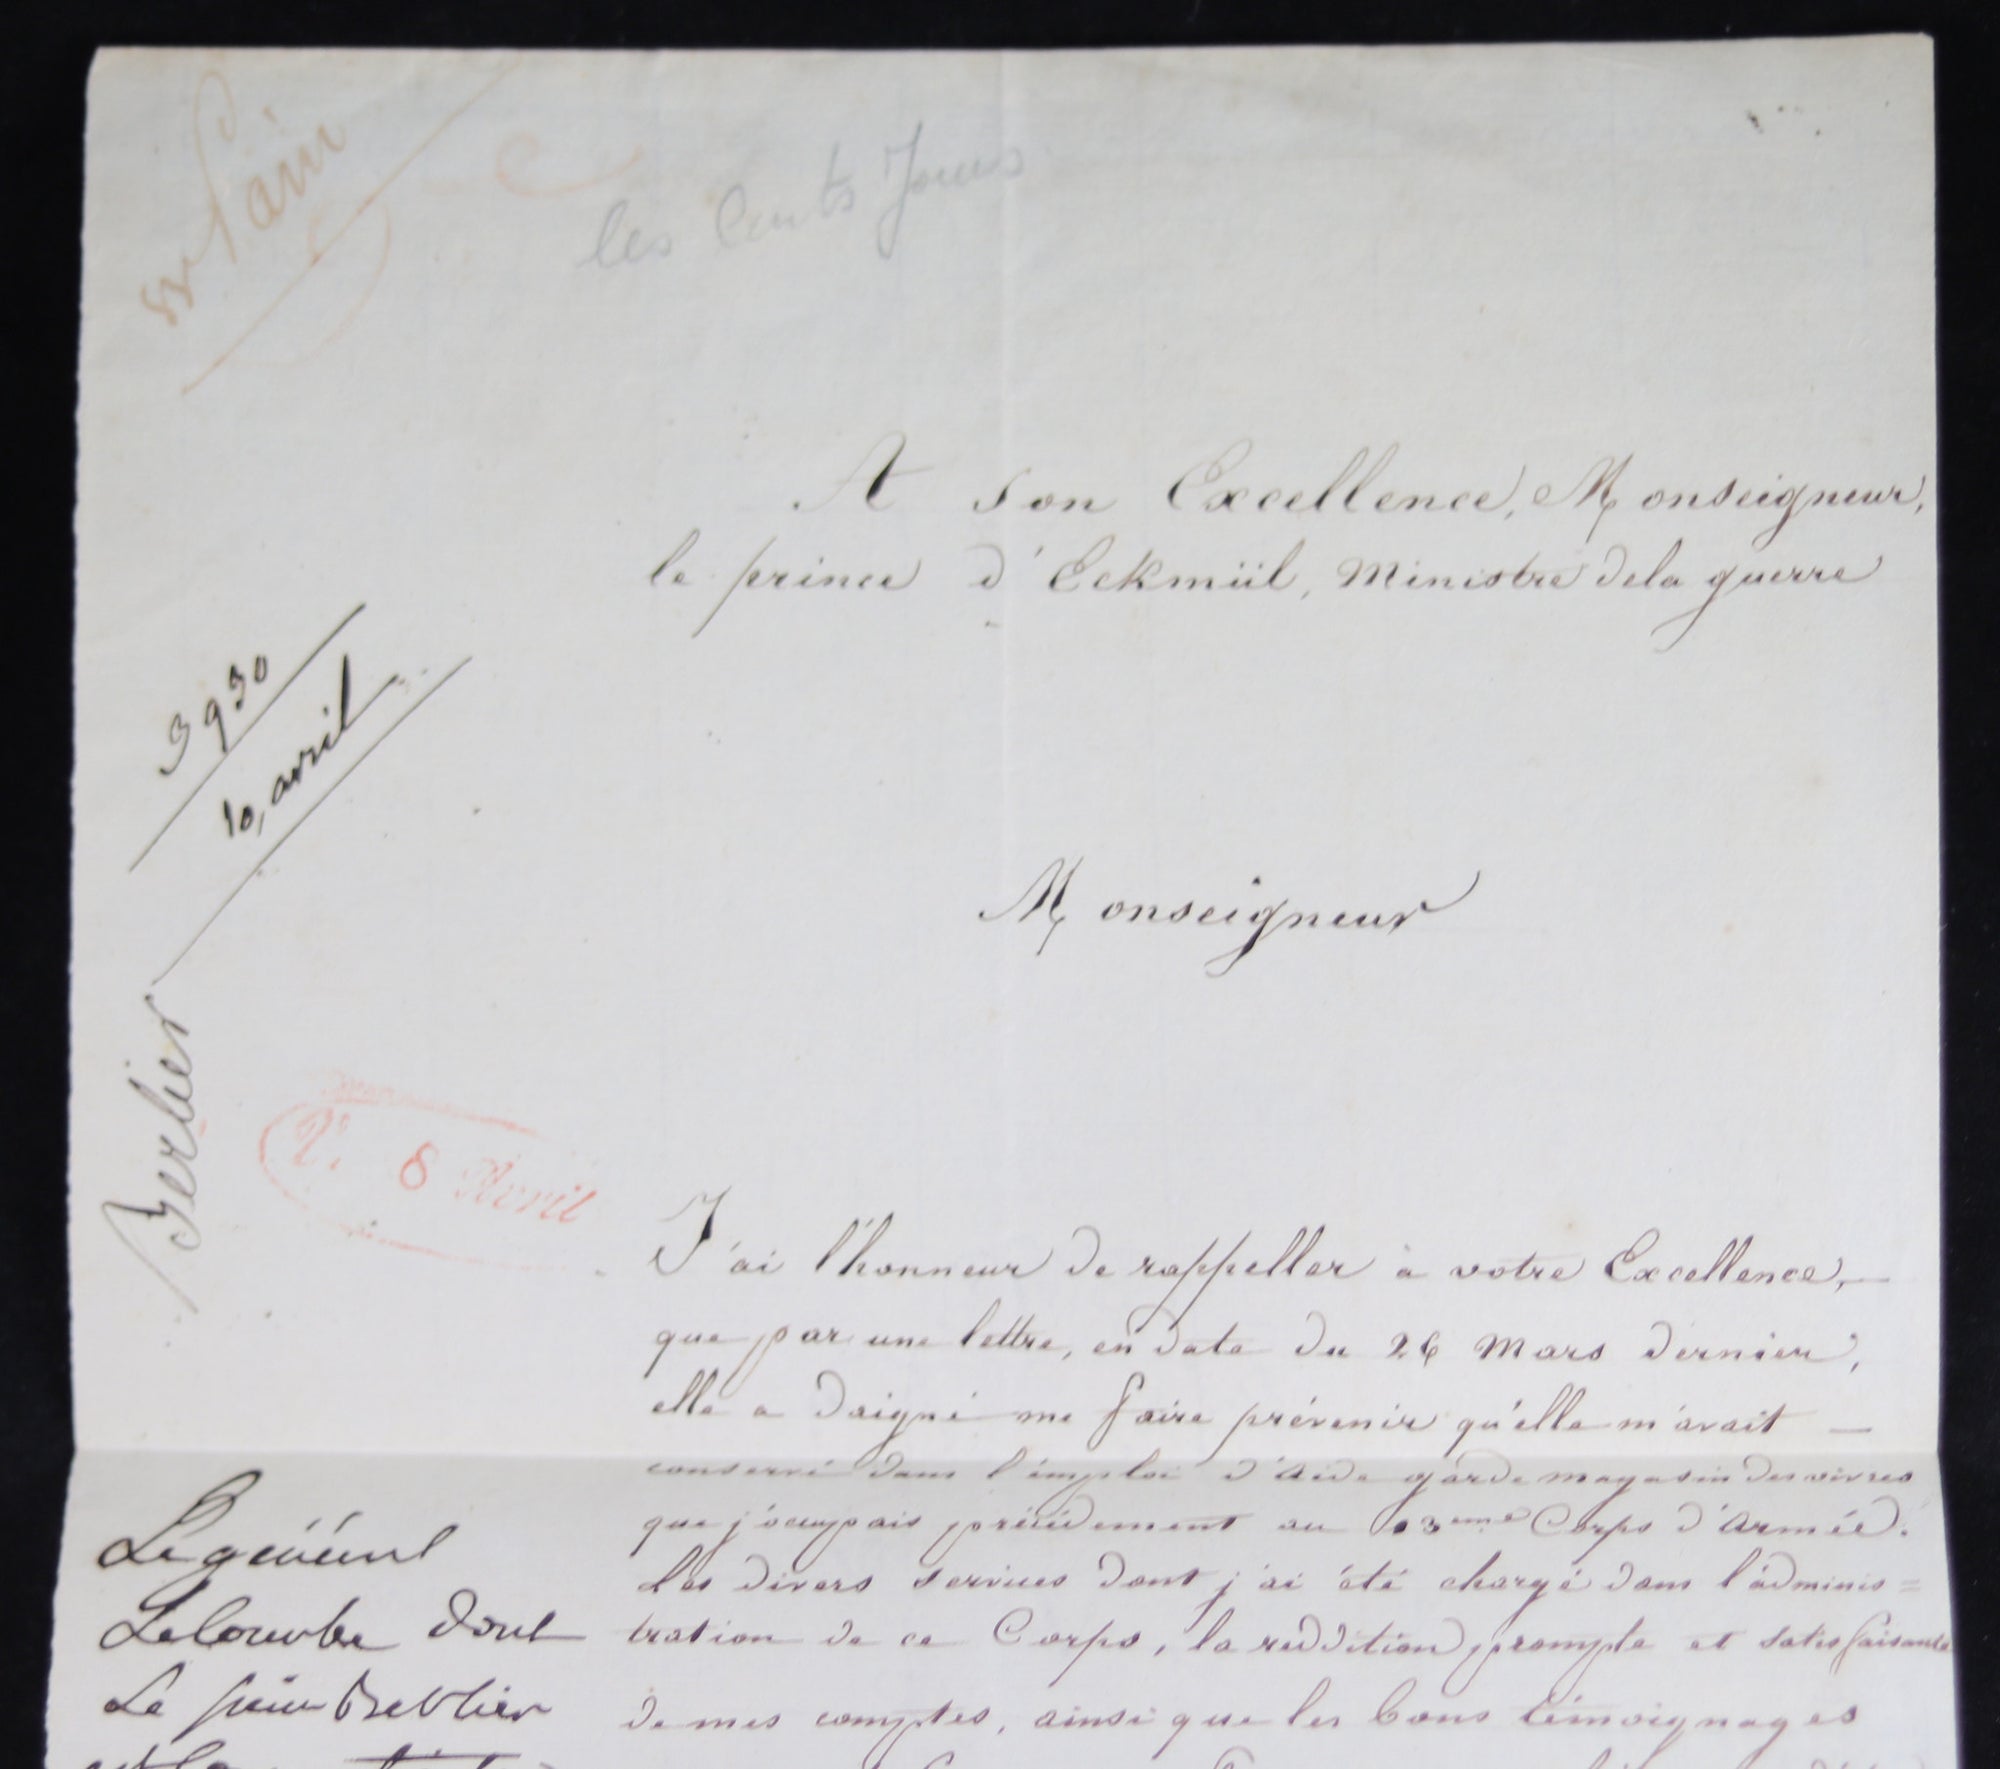 Pain
les Cents Jours
A son Excellence, Monseigneur,
le prince d'Eckmüil, Ministre dela guerre
3930
10, avril
Monseigneur
Berlier
8 Avril
J'ai l'honneur de rappeller à votre Excellence,
que par une lettre, en date du 26 Mars dernier,
elle a daigné me faire prévenir qu'elle m'avait
conservé dans l'émploi d'Aide garde magasin des vivres
que j'occupais précédement au 13eme Corps d'Armée.
Les divers services dont j'ai été chargé dans l'adminis=
tration de ce Corps, la reddition prompte et satisfaisante
de mes comptes, ainsi que les bons témoignages
Le général
Lecourbe dont
Le